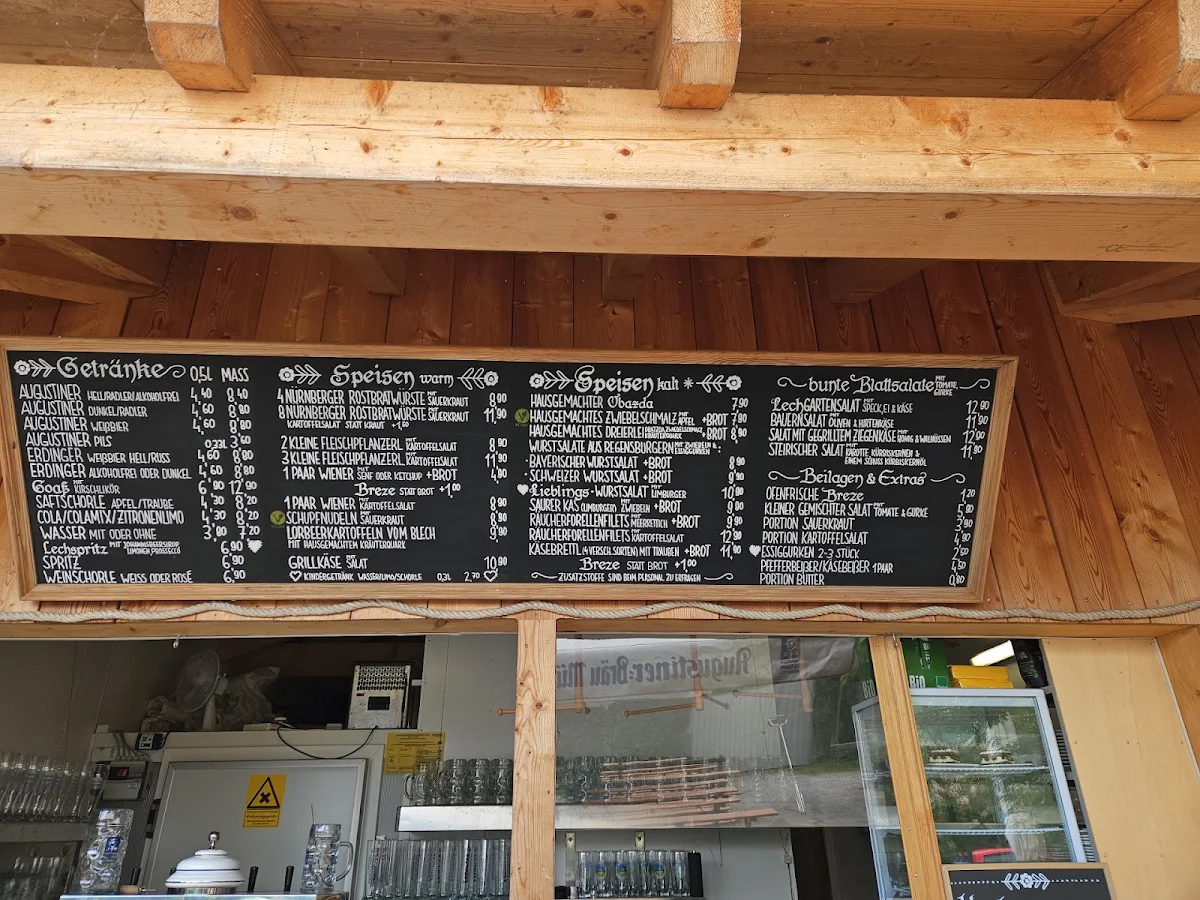 Getränke 0,5L MASS
AUGUSTINER HELL/RADLER/ALKOHOLFREI 4,40 8,40
AUGUSTINER DUNKEL/RADLER 4,60 8,80
AUGUSTINER WEIßBIER 4,60 8,80
AUGUSTINER PILS 0,33L 3,60
ERDINGER WEIßBIER HELL/RUSS 4,60 8,80
ERDINGER ALKOHOLFREI ODER DUNKEL 4,60 8,80
Goaß MIT KIRSCHLIKÖR 6,90 12,90
SAFTSCHORLE APFEL/TRAUBE 4,30 8,20
COLA/COLAMIX/ZITRONENLIMO 4,30 8,20
WASSER MIT ODER OHNE 3,80 7,20
Lechspritz MIT JOHANNISBEERSIRUP LIMONEN PROSECCO 6,90
SPRITZ 6,90
WEINSCHORLE WEISS ODER ROSÉ 6,90
Speisen warm
4 NÜRNBERGER ROSTBRATWÜRSTE MIT SAUERKRAUT 8,90
8 NÜRNBERGER ROSTBRATWÜRSTE MIT SAUERKRAUT 11,90
KARTOFFELSALAT STATT KRAUT +1,00
2 KLEINE FLEISCHPFLANZERL MIT KARTOFFELSALAT 8,90
3 KLEINE FLEISCHPFLANZERL MIT KARTOFFELSALAT 11,90
1 PAAR WIENER MIT SENF ODER KETCHUP +BROT 4,90
Breze STATT BROT +1,00
1 PAAR WIENER MIT KARTOFFELSALAT 8,90
SCHUPFNUDELN MIT SAUERKRAUT 8,90
LORBEERKARTOFFELN VOM BLECH 8,90
MIT HAUSGEMACHTEM KRÄUTERQUARK
GRILLKÄSE MIT SALAT 10,90
KINDERGETRÄNK WASSER/LIMO/SCHORLE 0,2L 2,70
Speisen kalt
HAUSGEMACHTER Obazda 7,90
HAUSGEMACHTES ZWIEBELSCHMALZ MIT APFEL +BROT 7,90
HAUSGEMACHTES DREIERLEI OBATZDA ZWIEBELSCHMALZ KRÄUTERQUARK +BROT 8,90
WURSTSALATE AUS REGENSBURGERN MIT ZWIEBELN & ESSIGGURKEN:
- BAYERISCHER WURSTSALAT +BROT 8,90
- SCHWEIZER WURSTSALAT +BROT 9,90
Lieblings-WURSTSALAT MIT LIMBURGER 10,90
SAURER KAS (LIMBURGER) MIT ZWIEBELN +BROT 9,90
RÄUCHERFORELLENFILETS MIT MEERRETTICH +BROT 9,90
RÄUCHERFORELLENFILETS MIT KARTOFFELSALAT 12,90
KÄSEBRETTL (4 VERSCH. SORTEN) MIT TRAUBEN +BROT 11,90
Breze STATT BROT +1,00
ZUSATZSTOFFE SIND BEIM PERSONAL ZU ERFRAGEN
bunte Blattsalate MIT TOMATE, GURKE
LechGARTENSALAT MIT SPECK, EI & KÄSE 12,90
BAUERNSALAT MIT OLIVEN & HIRTENKÄSE 11,90
SALAT MIT GEGRILLTEM ZIEGENKÄSE MIT HONIG & WALNÜSSEN 12,90
STEIRISCHER SALAT MIT KAROTTE, KÜRBISKERNEN & EINEM SCHUSS KÜRBISKERNÖL
Beilagen & Extras
OFENFRISCHE Breze 1,20
KLEINER GEMISCHTER SALAT MIT TOMATE & GURKE
PORTION SAUERKRAUT
PORTION KARTOFFELSALAT
ESSIGGURKEN 2-3 STÜCK
PFEFFERBEIßER/KÄSEBEIßER 1 PAAR
PORTION BUTTER
Augustiner-Bräu
Bio